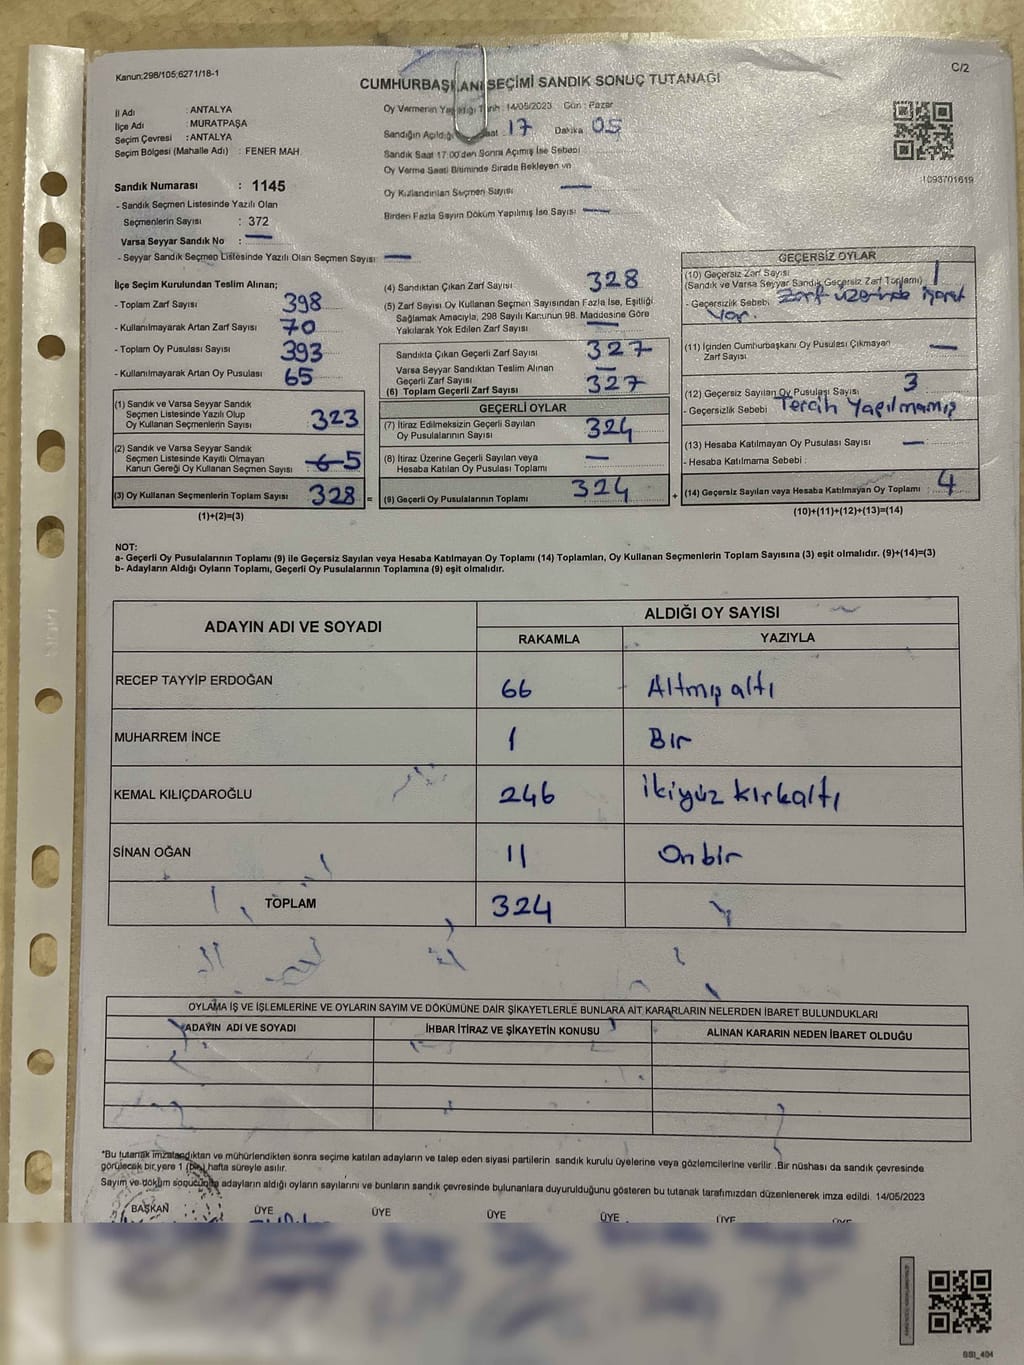 Kanun;298/105;6271/18-1
C/2
CUMHURBAŞKANI SEÇİMİ SANDIK SONUÇ TUTANAĞI
İl Adı : ANTALYA
İlçe Adı : MURATPAŞA
Seçim Çevresi : ANTALYA
Seçim Bölgesi (Mahalle Adı) : FENER MAH.
Oy Vermenin Tarih : 14/05/2023 Gün : Pazar
Sandığın Açıldığı Saat : 17 Dakika 05
Sandık Saat 17:00'den Sonra Açımış İse Sebebi
Oy Verme Saati Bitiminde Sırada Bekleyen ve
Oy Kullandırılan Seçmen Sayısı —
Birden Fazla Sayım Döküm Yapılmış İse Sayısı : —
1093701619
Sandık Numarası : 1145
- Sandık Seçmen Listesinde Yazılı Olan
Seçmenlerin Sayısı : 372
Varsa Seyyar Sandık No : —
- Seyyar Sandık Seçmen Listesinde Yazılı Olan Seçmen Sayısı: —
İlçe Seçim Kurulundan Teslim Alınan;
- Toplam Zarf Sayısı : 398
- Kullanılmayarak Artan Zarf Sayısı : 70
- Toplam Oy Pusulası Sayısı : 393
- Kullanılmayarak Artan Oy Pusulası : 65
(1) Sandık ve Varsa Seyyar Sandık
Seçmen Listesinde Yazılı Olup
Oy Kullanan Seçmenlerin Sayısı : 323
(2) Sandık ve Varsa Seyyar Sandık
Seçmen Listesinde Kayıtlı Olmayan
Kanun Gereği Oy Kullanan Seçmen Sayısı : 5
(3) Oy Kullanan Seçmenlerin Toplam Sayısı : 328 =
(1)+(2)=(3)
(4) Sandıktan Çıkan Zarf Sayısı : 328
(5) Zarf Sayısı Oy Kullanan Seçmen Sayısından Fazla İse, Eşitliği
Sağlamak Amacıyla, 298 Sayılı Kanunun 98. Maddesine Göre
Yakılarak Yok Edilen Zarf Sayısı : —
Sandıkta Çıkan Geçerli Zarf Sayısı : 327
Varsa Seyyar Sandıktan Teslim Alınan
Geçerli Zarf Sayısı : —
(6) Toplam Geçerli Zarf Sayısı : 327
GEÇERLİ OYLAR
(7) İtiraz Edilmeksizin Geçerli Sayılan
Oy Pusulalarının Sayısı : 324
(8) İtiraz Üzerine Geçerli Sayılan veya
Hesaba Katılan Oy Pusulası Toplamı : —
(9) Geçerli Oy Pusulalarının Toplamı : 324 +
GEÇERSİZ OYLAR
(10) Geçersiz Zarf Sayısı
(Sandık ve Varsa Seyyar Sandık Geçersiz Zarf Toplamı) 1
- Geçersizlik Sebebi : Zarf üzerinde işaret
Var.
(11) İçinden Cumhurbaşkanı Oy Pusulası Çıkmayan
Zarf Sayısı : —
(12) Geçersiz Sayılan Oy Pusulası Sayısı : 3
- Geçersizlik Sebebi : Tercih Yapılmamış
(13) Hesaba Katılmayan Oy Pusulası Sayısı : —
- Hesaba Katılmama Sebebi :
(14) Geçersiz Sayılan veya Hesaba Katılmayan Oy Toplamı : 4
(10)+(11)+(12)+(13)=(14)
NOT:
a- Geçerli Oy Pusulalarının Toplamı (9) ile Geçersiz Sayılan veya Hesaba Katılmayan Oy Toplamı (14) Toplamları, Oy Kullanan Seçmenlerin Toplam Sayısına (3) eşit olmalıdır. (9)+(14)=(3)
b- Adayların Aldığı Oyların Toplamı, Geçerli Oy Pusulalarının Toplamına (9) eşit olmalıdır.
ADAYIN ADI VE SOYADI
ALDIĞI OY SAYISI
RAKAMLA YAZIYLA
RECEP TAYYİP ERDOĞAN 66 Altmış altı
MUHARREM İNCE 1 Bir
KEMAL KILIÇDAROĞLU 246 ikiyüz kırkaltı
SİNAN OĞAN 11 Onbir
TOPLAM 324
OYLAMA İŞ VE İŞLEMLERİNE VE OYLARIN SAYIM VE DÖKÜMÜNE DAİR ŞİKAYETLERLE BUNLARA AİT KARARLARIN NELERDEN İBARET BULUNDUKLARI
ADAYIN ADI VE SOYADI İHBAR İTİRAZ VE ŞİKAYETİN KONUSU ALINAN KARARIN NEDEN İBARET OLDUĞU
*Bu tutanak imzalandıktan ve mühürlendikten sonra seçime katılan adayların ve talep eden siyasi partilerin sandık kurulu üyelerine veya gözlemcilerine verilir. Bir nüshası da sandık çevresinde
görülecek bir yere 1 (bir) hafta süreyle asılır.
Sayım ve döküm sonucunda adayların aldığı oyların sayılarını ve bunların sandık çevresinde bulunanlara duyurulduğunu gösteren bu tutanak tarafımızdan düzenlenerek imza edildi. 14/05/2023
BAŞKAN ÜYE ÜYE ÜYE ÜYE ÜYE ÜYE